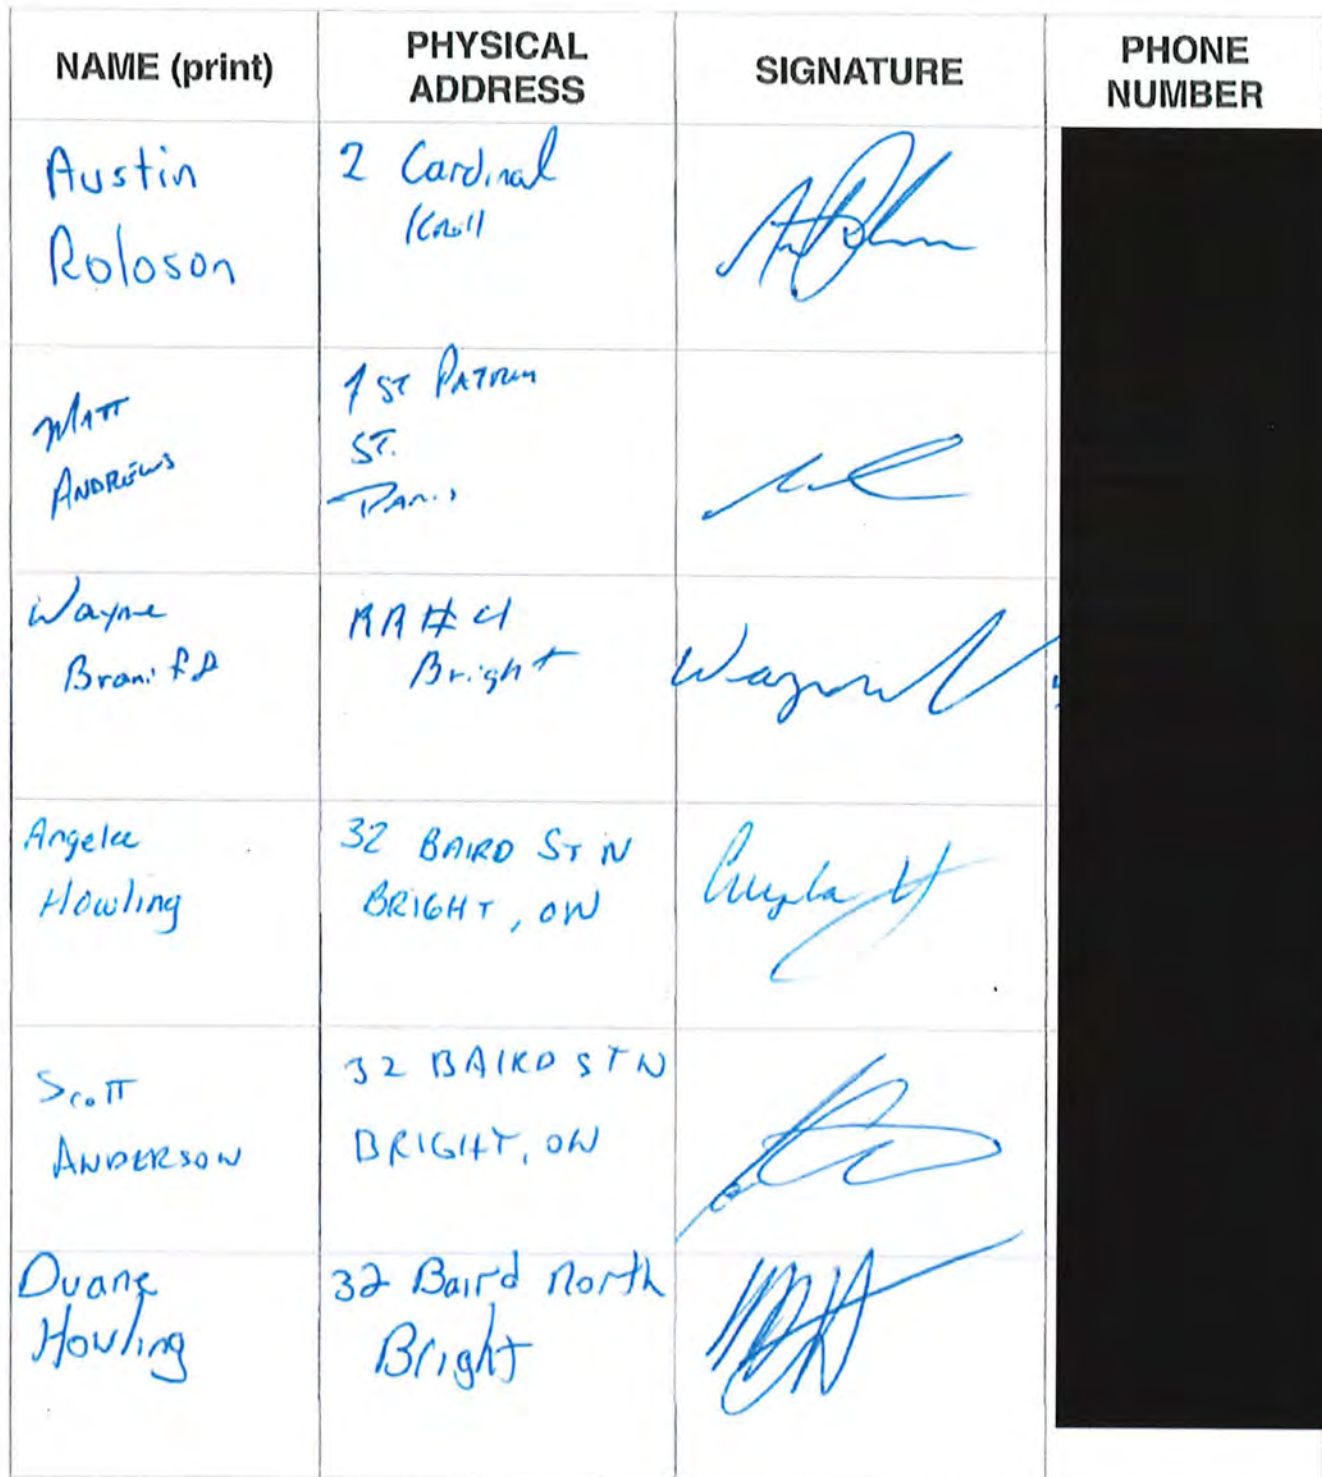 NAME (print)
PHYSICAL
ADDRESS
SIGNATURE
PHONE
NUMBER
Austin
Roloson
2 Cardinal
Knoll
MATT
ANDREWS
1 ST
ST.
Paris
Wayne
RR#4
Bright
Wayne
Angela
Howling
32 BAIRD ST N
BRIGHT, ON
Angela H
Scott
ANDERSON
32 BAIRD ST N
BRIGHT, ON
Duane
Howling
32 Baird North
Bright